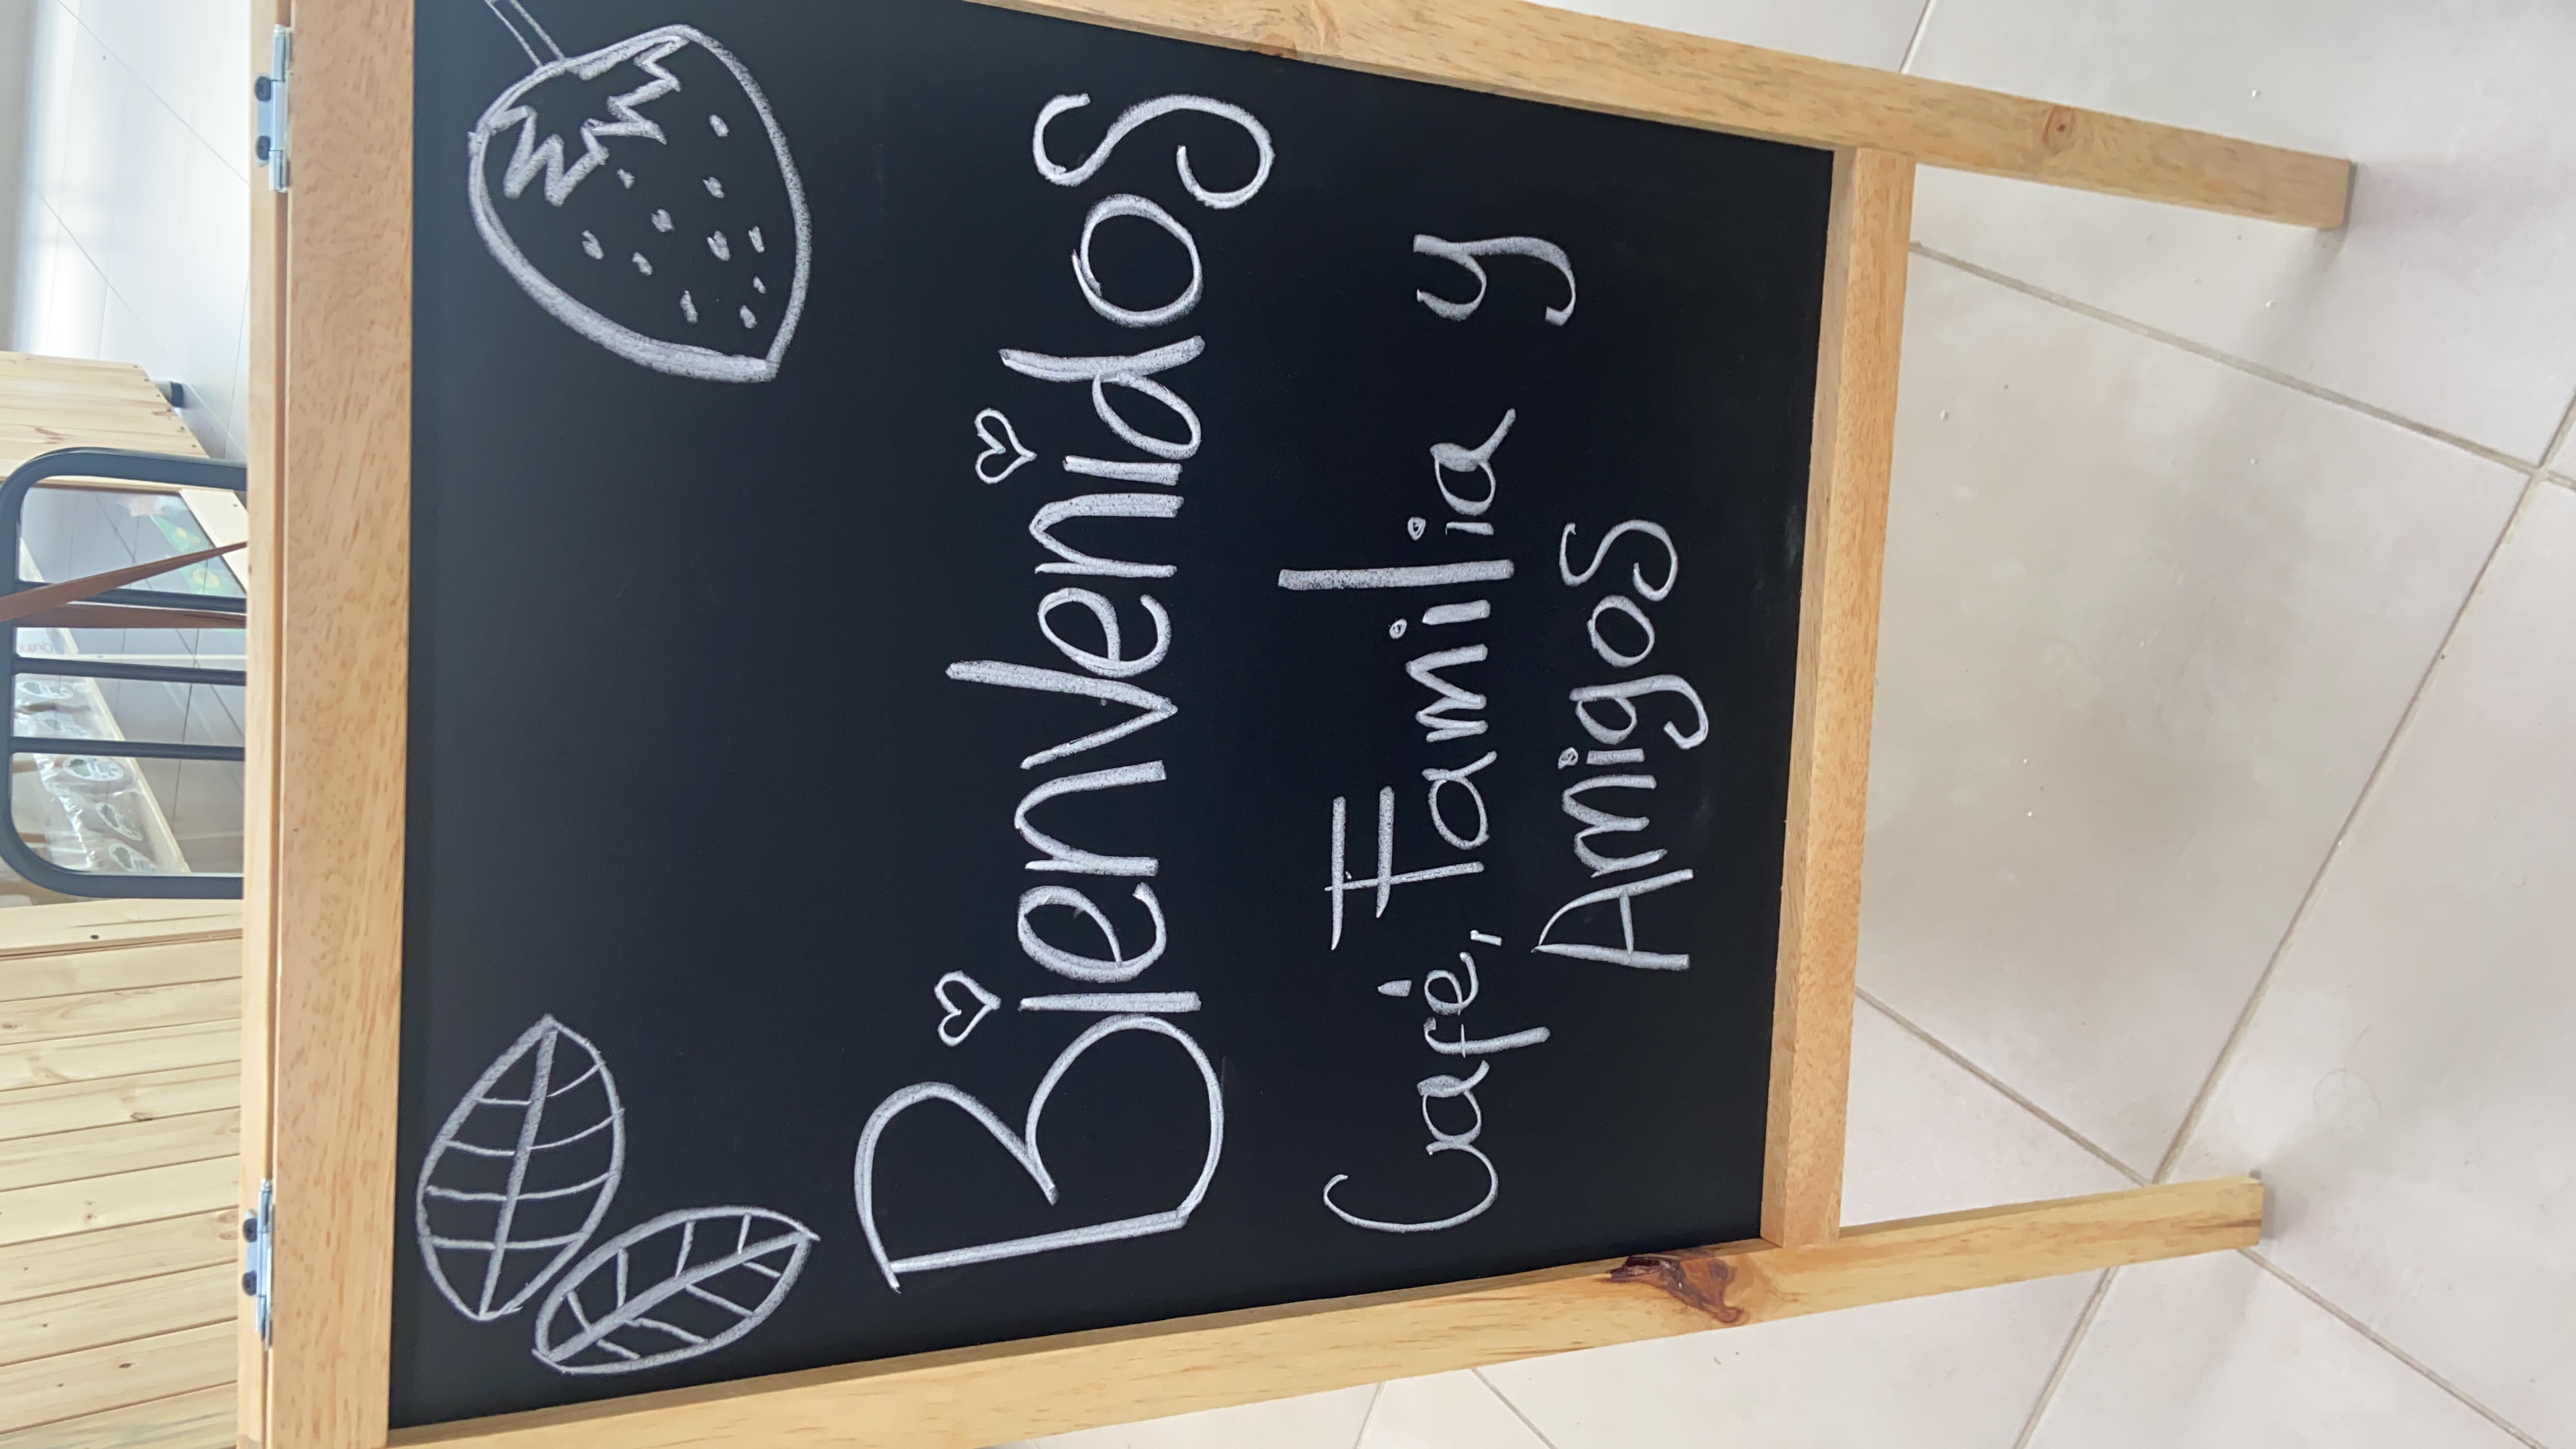 Bienvenidos
Café, Familia y
Amigos